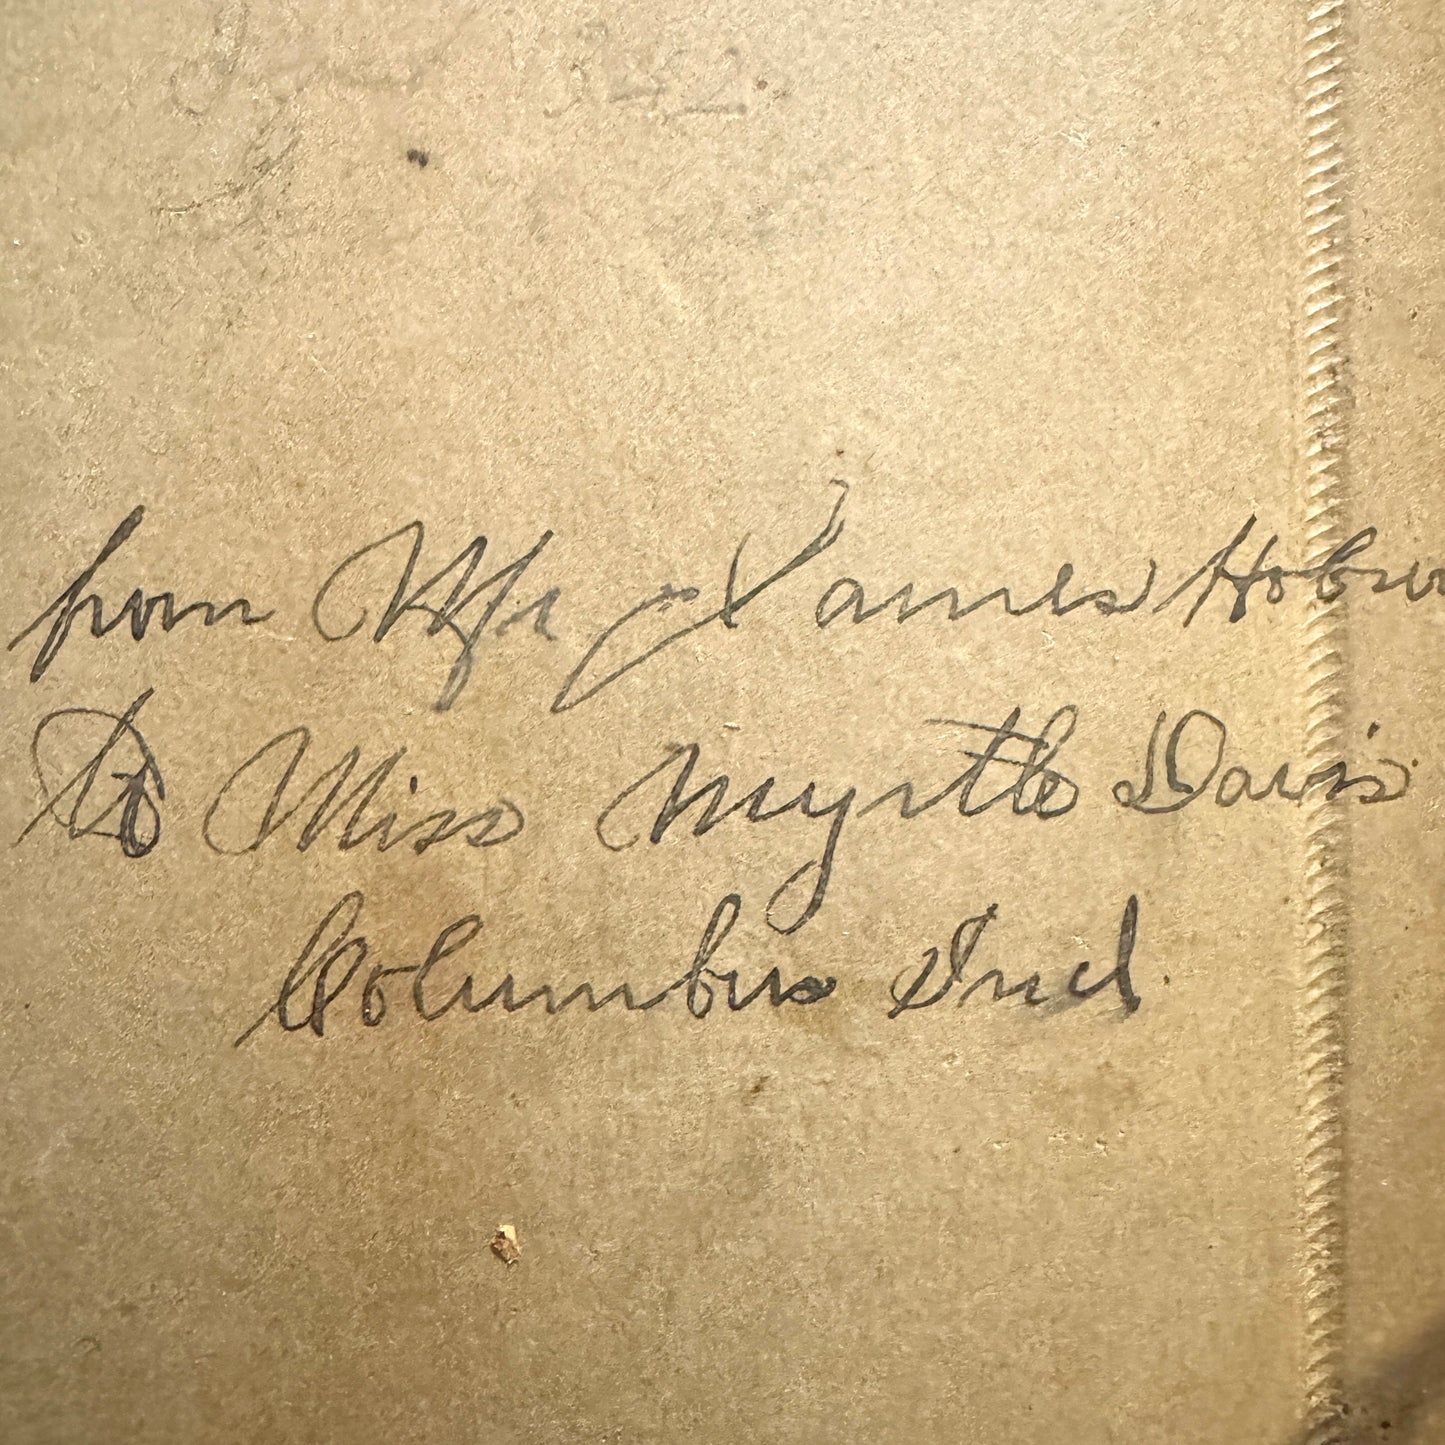 from Mr James Hobson
To Miss Myrtle Davis
Columbus Ind.